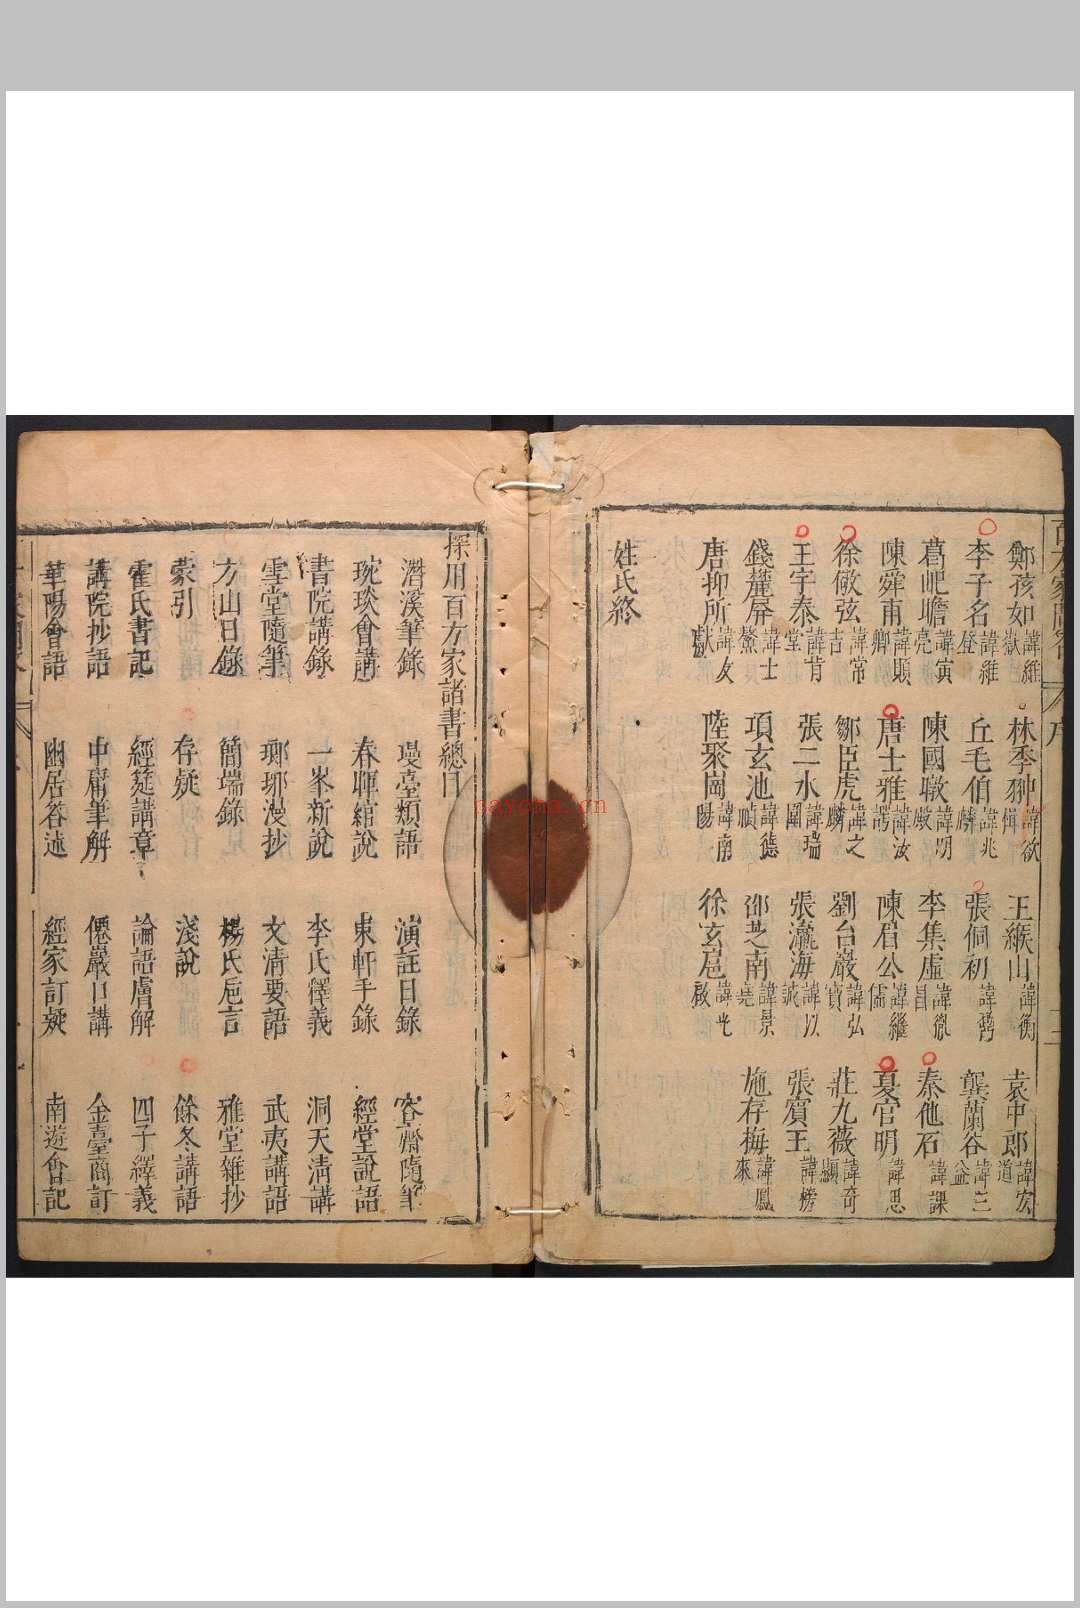 鄭孩如 諱維嶽 林季翀 諱欲楫 王緱山 諱衡 袁中郎 諱宏道
李子名 諱維登 丘毛伯 諱兆麟 張侗初 諱鼐 龔蘭谷 諱三益
葛屺瞻 諱寅亮 陳國暾 諱明 李集虛 諱胤昌 秦他石 諱課
陳舜甫 諱顯卿 唐士雅 諱汝諤 陳眉公 諱繼儒 夏官明 諱思
徐儆弦 諱常吉 鄒臣虎 諱之麟 劉台巖 諱弘寶 莊九薇 諱奇顯
王宇泰 諱肯堂 張二水 諱瑞圖 張瀛海 諱以誠 張賓王 諱榜
錢麓屏 諱士鰲 項玄池 諱德楨 邵芝南 諱景堯 施存梅 諱鳳來
唐抑所 諱文獻 陸聚崗 諱南陽 徐玄扈 諱光啟
姓氏終
採用百方家諸書總目
潛溪筆錄 曼臺類語 演註日錄 容齋隨筆
琬琰會講 春暉綰說 東軒手錄 經堂說語
書院講錄 一峯新說 李氏釋義 洞天淸講
雪堂隨筆 瑯琊漫抄 文淸要語 武夷講語
方山日錄 簡端錄 楊氏巵言 雅堂雜抄
蒙引 存疑 淺說 餘冬講語
霍氏書記 經筵講章 論語膚解 四子繹義
講院抄語 中庸筆解 僊巖口講 金臺商訂
華陽會語 幽居答述 經家訂疑 南遊會記
naycha.cn